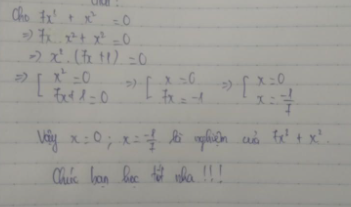 Cho 7x³ + x² = 0
=> 7x . x² + x² = 0
=> x² . (7x + 1) = 0
=> [ x² = 0 => [ x = 0 => [ x = 0
7x + 1 = 0 7x = -1 x = -1/7
Vậy x = 0 ; x = -1/7 là nghiệm của 7x³ + x²
Chúc bạn học tốt nha !!!